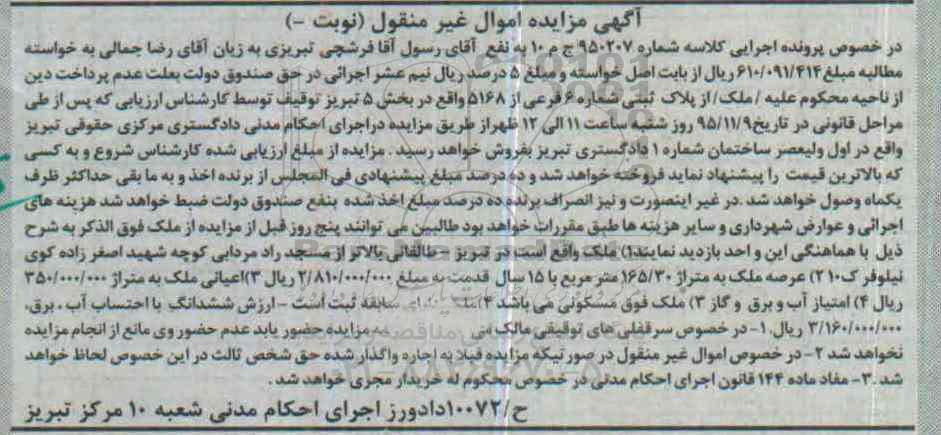 آگهی مزایده اموال غیر منقول (نوبت -)
در خصوص پرونده اجرایی کلاسه شماره ۹۵۰۲۰۷ ج م ۱۰ به نفع آقای رسول آقا فرشچی تبریزی به زیان آقای رضا جمالی به خواسته
مطالبه مبلغ ۶۱۰/۰۹۱/۴۱۴ ریال از بابت اصل خواسته و مبلغ ۵ درصد ریال نیم عشر اجرائی در حق صندوق دولت بعلت عدم پرداخت دین
از ناحیه محکوم علیه /ملک/ از پلاک ثبتی شماره ۶ فرعی از ۵۱۶۸ واقع در بخش ۵ تبریز توقیف توسط کارشناس ارزیابی که پس از طی
مراحل قانونی در تاریخ ۹۵/۱۱/۹ روز شنبه ساعت ۱۱ الی ۱۲ ظهر از طریق مزایده دراجرای احکام مدنی دادگستری مرکزی حقوقی تبریز
واقع در اول ولیعصر ساختمان شماره ۱ دادگستری تبریز بفروش خواهد رسید . مزایده از مبلغ ارزیابی شده کارشناس شروع و به کسی
که بالاترین قیمت را پیشنهاد نماید فروخته خواهد شد و ده درصد مبلغ پیشنهادی فی المجلس از برنده اخذ و به ما بقی حداکثر ظرف
یکماه وصول خواهد شد .در غیر اینصورت و نیز انصراف برنده ده درصد مبلغ اخذ شده بنفع صندوق دولت ضبط خواهد شد هزینه های
اجرائی و عوارض شهرداری و سایر هزینه ها طبق مقررات خواهد بود طالبین می توانند پنج روز قبل از مزایده از ملک فوق الذکر به شرح
ذیل با هماهنگی این و احد بازدید نمایند۱) ملک واقع است در تبریز - طالقانی بالاتر از مسجد راد مردابی کوچه شهید اصغر زاده کوی
نیلوفر ک۱۰ ۲) عرصه ملک به متراژ ۱۶۵/۳۰ متر مربع با ۱۵ سال قدمت به مبلغ ۲/۸۱۰/۰۰۰/۰۰۰ ریال ۳)اعیانی ملک به متراژ ۳۵۰/۰۰۰/۰۰۰
ریال ۴) امتیاز آب و برق و گاز ۳) ملک فوق مسکونی می باشد ۴ سابقه ثبت است - ارزش ششدانگ با احتساب آب ، برق،
۳/۱۶۰/۰۰۰/۰۰۰ ریال.۱- در خصوص سرقفلی های توقیفی مالک می به مزایده حضور یابد عدم حضور وی مانع از انجام مزایده
نخواهد شد ۲- در خصوص اموال غیر منقول در صورتیکه مزایده قبلا به اجاره واگذار شده حق شخص ثالث در این خصوص لحاظ خواهد
شد .۳- مفاد ماده ۱۴۴ قانون اجرای احکام مدنی در خصوص محکوم له خریدار مجری خواهد شد .
ح/۱۰۰۷۲دادورز اجرای احکام مدنی شعبه ۱۰ مرکز تبریز